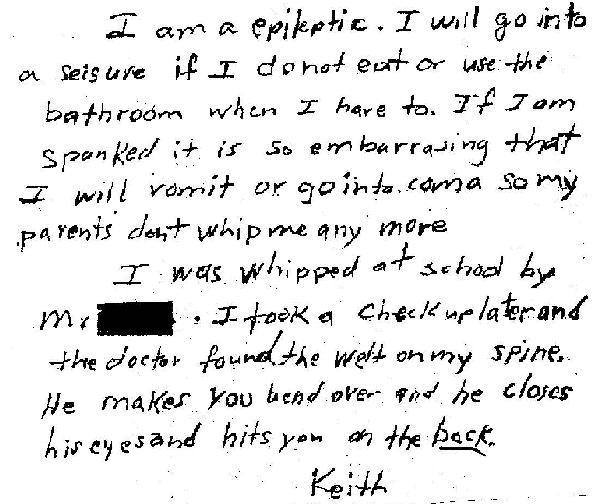 I am a epileptic. I will go into
a seisure if I do not eat or use the
bathroom when I have to. If I am
spanked it is so embarrasing that
I will vomit or go into coma so my
parents dont whip me any more
I was whipped at school by
Mr . I took a check up later and
the doctor found the welt on my spine.
He makes you bend over and he closes
his eyes and hits you on the back.
Keith